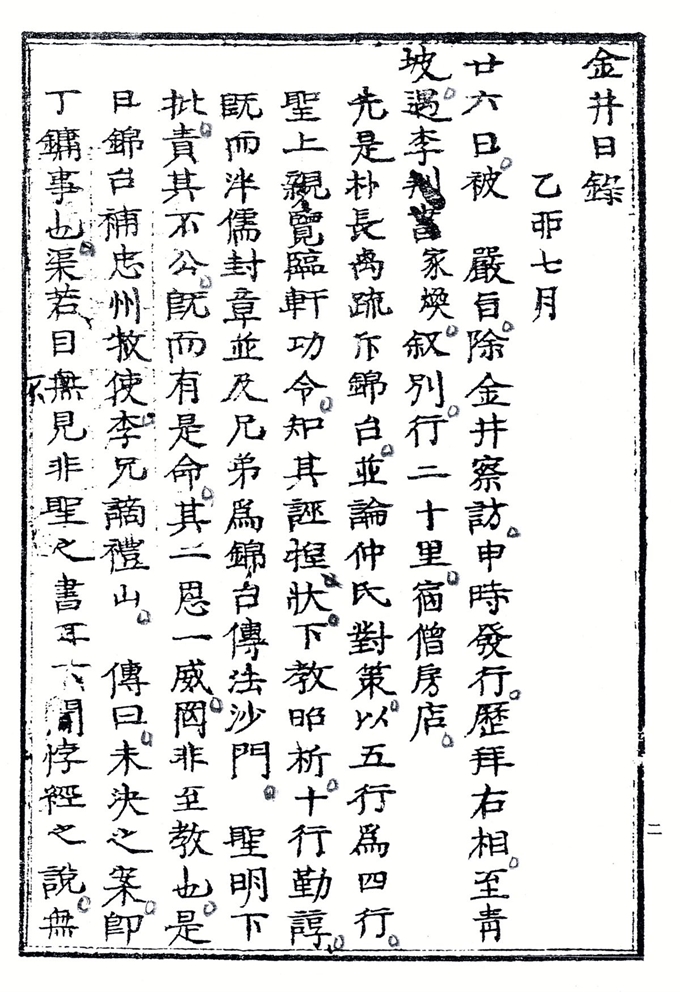 金井日錄
乙夘七月
廿六日被 嚴旨除金井察訪申時發行歷拜右相至靑
坡遇李判書家煥叙別行二十里宿僧房店
先是朴長卨疏斥錦台並論仲氏對策以五行爲四行
聖上親覽臨軒功令知其誣揑狀下教昭析十行勤諄
旣而泮儒封章並及兄弟爲錦台傳法沙門 聖明下
批責其不公旣而有是命其二恩一威罔非至教也是
日錦台補忠州牧使李兄謫禮山 傳曰未決之案卽
丁鏞事也渠若目無見非聖之書耳不聞悖經之說無
不
二